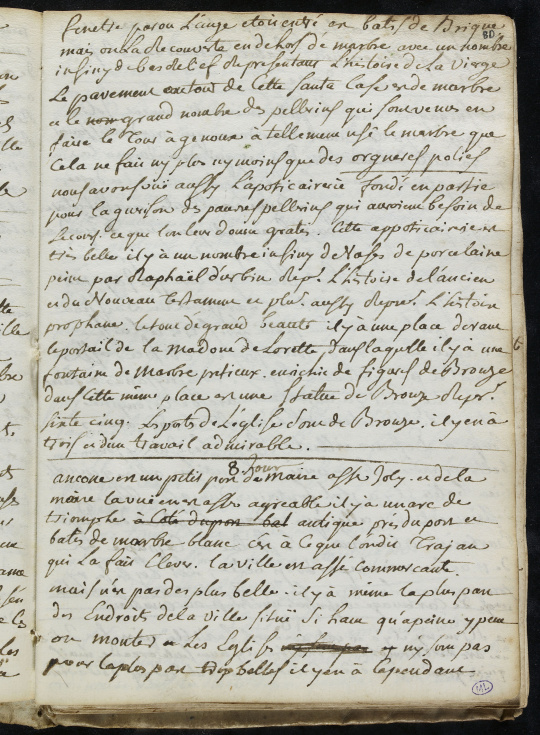 80
fenetre par ou L'ange etoit entré en batis de Brique
mais on La decouverte en dehors de marbre avec un nombre
infiny de bas relief representant L'histoire de La vierge
Le pavement autour de Cette santa Casa est de marbre
et le grand nombre des pellerins qui sont venus en
faire le Tour à genoux à tellement usé le marbre que
Cela ne fait ny plus ny moins que des orgnieres polies
nous avons vüi aussy L'apoticairerie fondé en partie
pour la guerison des pauvres pellerins qui auroient besoin de
secours. ce que l'on leur donne gratis. Cette appoticairerie est
tres belle il y à un nombre infiny de Vases de porcelaine
peint par Raphaël d'urbin Repr.t L'histoire de l'ancien
et du Nouveau testament et plu.rs aussy Repre.t L'histoire
prophane. le tout de grand beauté il y à une place devant
le portail de la madone de Lorette, dans laquelle il y à une
fontaine de Marbre pretieux. enrichie de figures de Bronze
dans Cette même place est une statue de Bronze Repr.t
sixte cinq. Les portes de L'eglise sont de Bronze. il y en à
trois et d'un travail admirable.
8 Jour
ancone est un petit port de maire assé Joly. et de la
maire la vüe en est assé agreable il y à un arc de
triomphe à Coté du port bat antique pres du port et
batis de marbre blanc c'est à Ce que l'on dit Trajan
qui La fait Elever. La ville est assé commercante.
mais n'est pas des plus belle. il y à même la plus part
des Endroits de la ville situé si haut qu'apeine y peut
on monter et Les Eglises ny sont pas
pour la plus part trop belles il y en à Cependant
ML